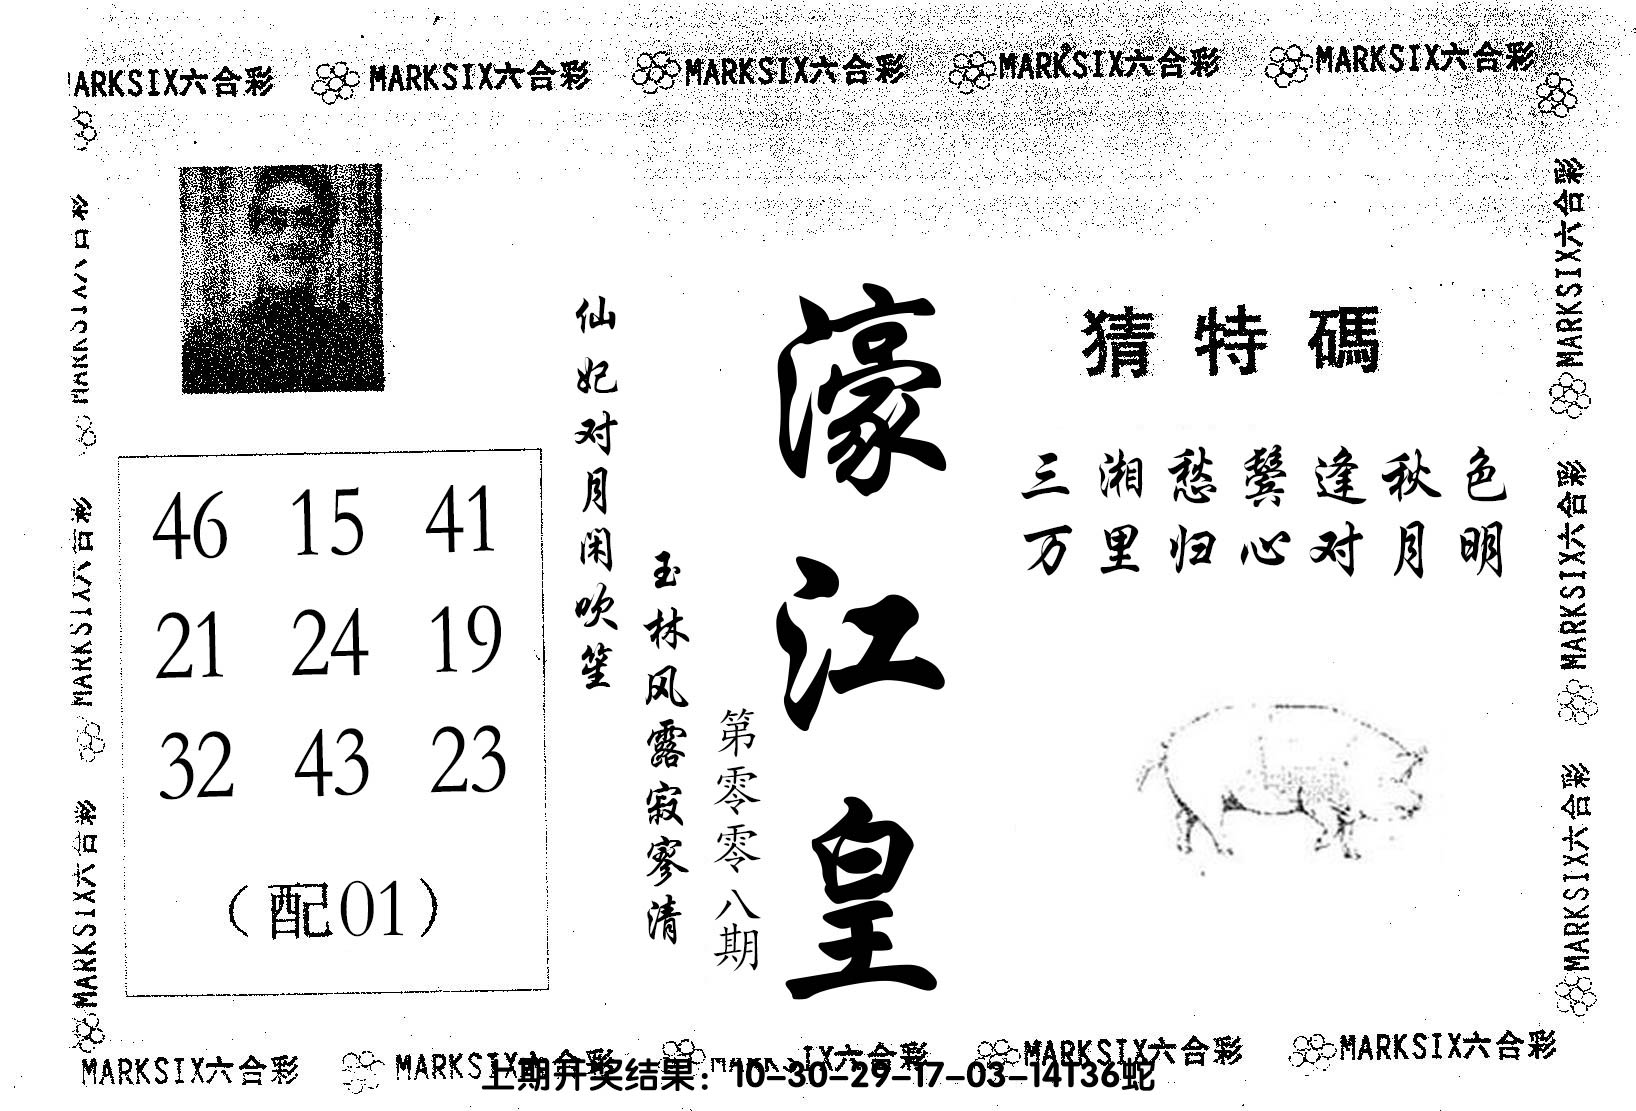 MARKSIX六合彩 MARKSIX六合彩 MARKSIX六合彩 MARKSIX六合彩 MARKSIX六合彩
猜特碼
三湘愁鬓逢秋色
万里归心对月明
濠江皇
第零零八期
仙妃对月闲吹笙
玉林风露寂寥清
46 15 41
21 24 19
32 43 23
（配01）
MARKSIX六合彩
MARKSIX六合彩
MARKSIX六合彩
MARKSIX六合彩
MARKSIX六合彩
MARKSIX六合彩
MARKSIX六合彩 MARKSIX六合彩 MARKSIX六合彩 MARKSIX六合彩 MARKSIX六合彩
上期开奖结果：10-30-29-17-03-14T36蛇